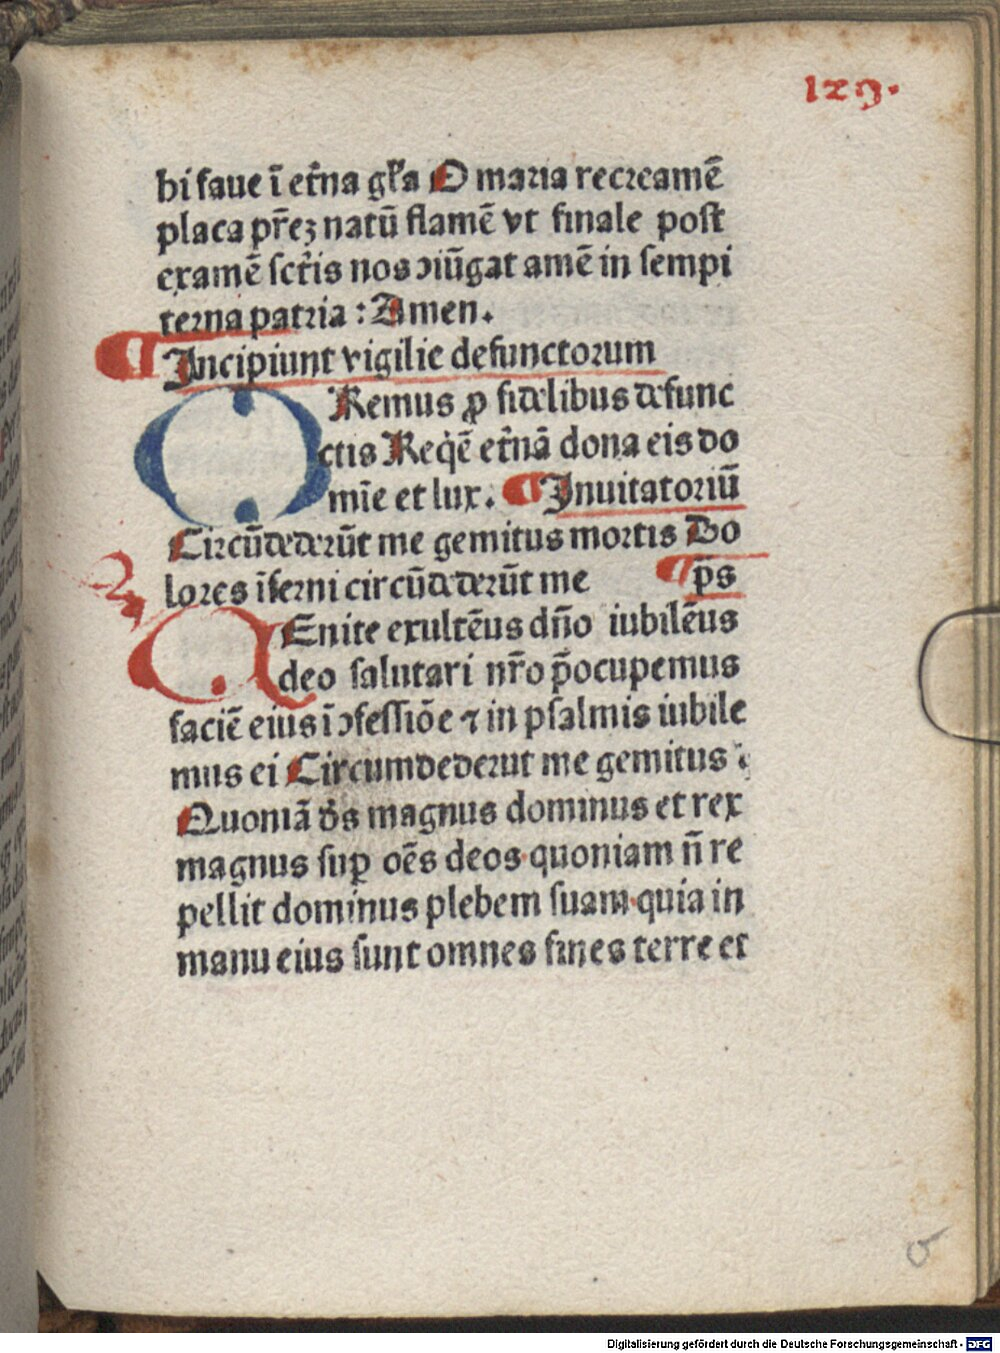 129.
bi faue ī et̄na gl̄a O maria recreamē
placa pr̄eʒ natū flamē vt finale post
examē sct̄is nos ↄiūgat amē in sempi
terna patria : Amen.
¶ Incipiunt vigilie defunctorum
ORemus ꝓ fidelibus defunc
ctis Req̇ē et̄nā dona eis do
mīe et lux. ¶ Inuitatoriū
Circūdederūt me gemitus mortis Do
lores īferni circūdederūt me ¶ p̄s
VEnite exultēus dn̄o iubilēus
deo salutari nr̄o p̄ocupemus
faciē eius ī ↄfessiōe ⁊ in psalmis iubile
mus ei Circumdederut me gemitus
Quoniā ds̄ magnus dominus et rex
magnus suꝑ oēs deos·quoniam n̄ re
pellit dominus plebem suam·quia in
manu eius sunt omnes fines terre et
Digitalisierung gefördert durch die Deutsche Forschungsgemeinschaft - DFG